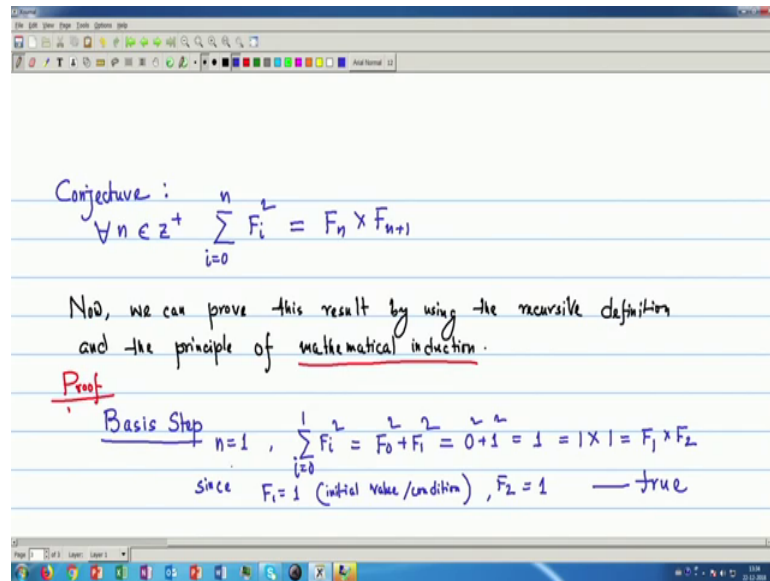 Journal
File Edit View Page Tools Options Help
Arial Normal 12
Conjecture :
∀ n ∈ z⁺ ∑_{i=0}^{n} F_i² = F_n × F_{n+1}
Now, we can prove this result by using the recursive definition
and the principle of mathematical induction.
Proof
Basis Step n=1 , ∑_{i=0}^{1} F_i² = F_0² + F_1² = 0² + 1² = 1 = 1 × 1 = F_1 × F_2
since F_1 = 1 (initial value/condition), F_2 = 1 — true
Page 3 of 3 Layer: Layer 1